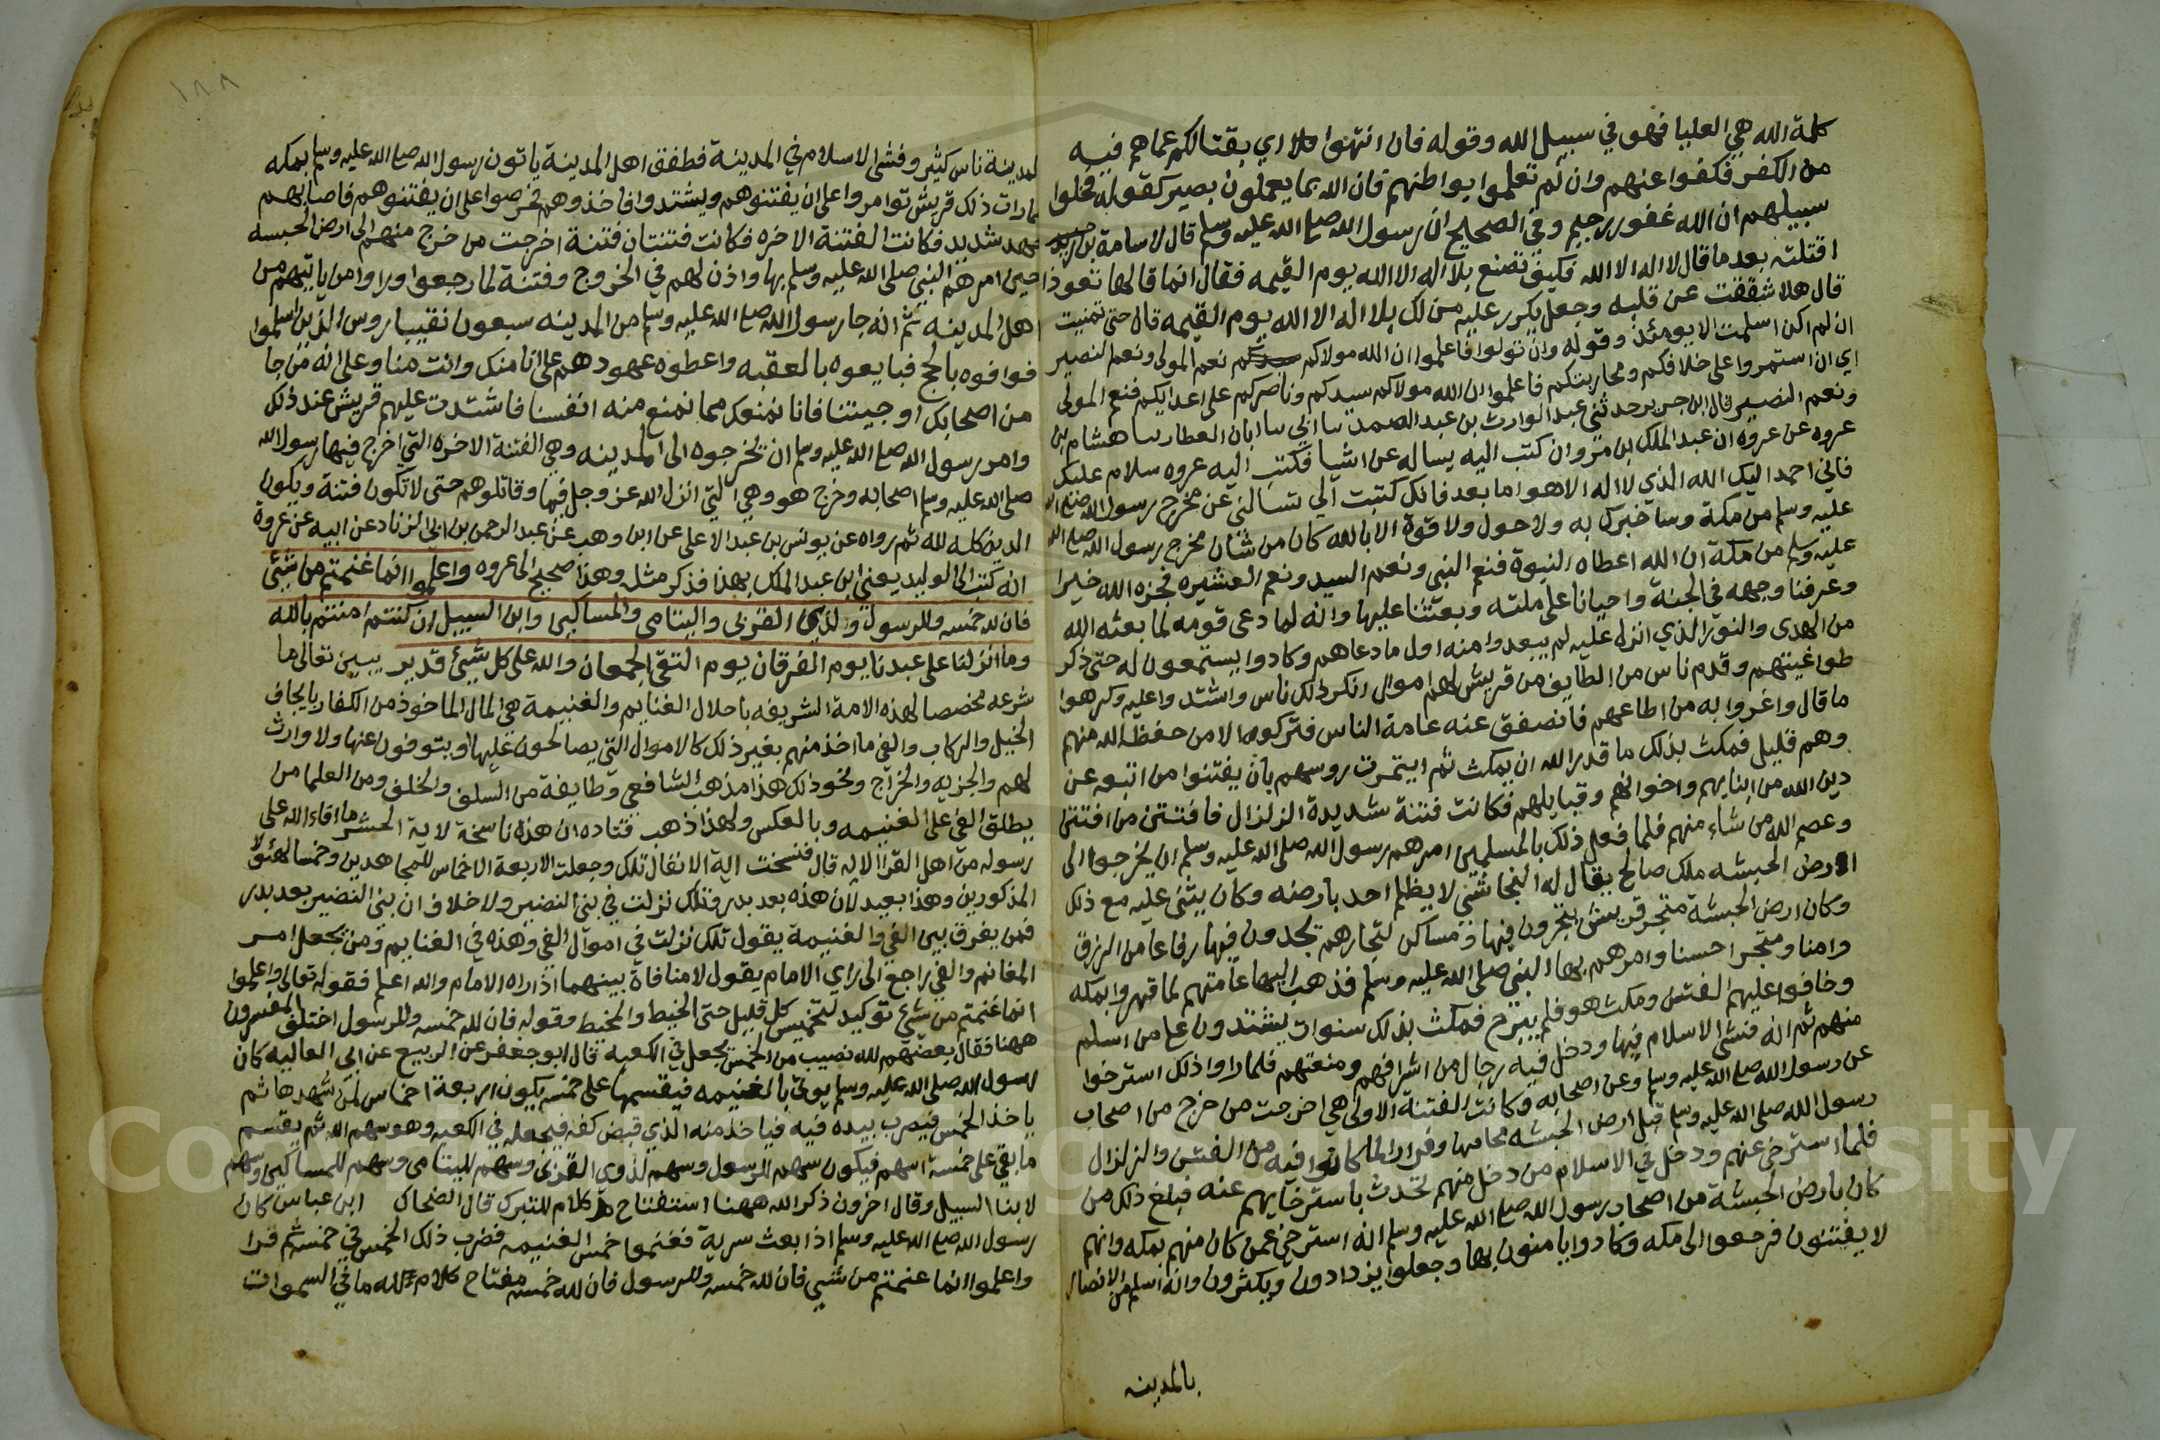 كلمة الله هي العليا فهو في سبيل الله وقوله فان انتهوا اي بقتالكم عما هم فيه
من الكفر فكفوا عنهم وان لم تعلموا بواطنهم فان الله بما يعملون بصير كقوله فخلوا
سبيلهم ان الله غفور رحيم وفي الصحيح ان رسول الله صلى الله عليه وسلم قال لاسامة
اقتلته بعد ما قال لا اله الا الله فكيف تصنع بلا اله الا الله يوم القيمه فقال انما قالها تعوذا
قال هلا شققت عن قلبه وجعل يكرر عليه من لك بلا اله الا الله يوم القيمه قال حتى تمنيت
ان لم اكن اسلمت الا يومئذ وقوله وان تولوا فاعلموا ان الله مولاكم نعم المولى ونعم النصير
اي ان استمروا على خلافكم ومحاربتكم فاعلموا ان الله مولاكم سيدكم وناصركم على اعدايكم فنعم المولى
ونعم النصير قال ابن جرير حدثني عبد الوارث بن عبد الصمد سا ابي سا ابان العطار سا هشام بن
عروه عن عروه ان عبد الملك بن مروان كتب اليه يساله عن اشيا فكتب اليه عروه سلام عليك
فاني احمد اليك الله الذي لا اله الا هو اما بعد فانك كتبت الي تسالني عن مخرج رسول الله صلى الله
عليه وسلم من مكة وساخبرك به ولا حول ولا قوة الا بالله كان من شان مخرج رسول الله صلى الله
عليه وسلم من مكة ان الله اعطاه النبوة فنعم النبي ونعم السيد ونعم العشيره فجزه الله خيرا
وعرفنا وجهه في الجنة واحيانا على ملته وبعثنا عليها وانه لما دعى قومه لما بعثه الله
من الهدى والنور الذي انزل عليه لم يبعدوا منه اول ما دعاهم وكادوا يستمعون له حتى ذكر
طواغيتهم وقدم ناس من الطايف من قريش لهم اموال انكر ذلك ناس واشتدوا عليه وكرهوا
ما قال واغروا به من اطاعهم فانصفق عنه عامة الناس فتركوه الا من حفظ الله منهم
وهم قليل فمكث بذلك ما قدر الله ان يمكث ثم ايتمرت روسهم بان يفتنوا من اتبعه عن
دين الله من ابنايهم واخوانهم وقبايلهم فكانت فتنة شديدة الزلزال فافتتن من افتتن
وعصم الله من شاء منهم فلما فعل ذلك بالمسلمين امرهم رسول الله صلى الله عليه وسلم ان يخرجوا الى
ارض الحبشه ملك صالح يقال له النجاشي لا يظلم احد بارضه وكان يثنى عليه مع ذلك
وكان ارض الحبشة متجر قريش يتجرون فيها ومساكن لتجارهم يجدون فيها رفاعا من الرزق
وامنا ومتجرا حسنا وامرهم بها النبي صلى الله عليه وسلم فذهب اليها عامتهم لما قهروا بمكه
وخافوا عليهم الفتن ومكث هو فلم يبرح فمكث بذلك سنوات يشتدون على من اسلم
منهم ثم انه فشى الاسلام فيها ودخل فيه رجال من اشرافهم ومنعتهم فلما راوا ذلك استرخوا
عن رسول الله صلى الله عليه وسلم وعن اصحابه وكانت الفتنة الاولى هي اخرجت من خرج من اصحاب
رسول الله صلى الله عليه وسلم قبل ارض الحبشه مخافتها وفرارا لما كانوا فيه من الفتن والزلزال
فلما استرخى عنهم ودخل في الاسلام من دخل منهم تحدث باسترخايهم عنه فبلغ ذلك من
كان بارض الحبشة من اصحاب رسول الله صلى الله عليه وسلم انه استرخي عمن كان منهم بمكه وانهم
لا يفتنون فرجعوا الى مكه وكادوا يامنون بها وجعلوا يزدادون ويكثرون وانه اسلم من الانصار
بالمدينه
١٨٨
بالمدينة ناس كثير وفشى الاسلام في المدينة فطفق اهل المدينة ياتون رسول الله صلى الله عليه وسلم بمكه
فلما رات ذلك قريش توامروا على ان يفتنوهم ويشتدوا فاخذوهم فحرصوا على ان يفتنوهم فاصابهم
جهد شديد فكانت الفتنة الاخره فكانت فتنتان فتنة اخرجت من خرج منهم الى ارض الحبسه
حين امرهم النبي صلى الله عليه وسلم بها واذن لهم في الخروج وفتنة لما رجعوا وراوا من ياتيهم من
اهل المدينه ثم انه جا رسول الله صلى الله عليه وسلم من المدينه سبعون نقيبا روس الذين اسلموا
فوافوه بالحج فبايعوه بالعقبه واعطوه عهودهم على انا منك وانت منا وعلى انه من جا
من اصحابك او جيتنا فانا نمنعك مما نمنع منه انفسنا فاشتدت عليهم قريش عند ذلك
وامر رسول الله صلى الله عليه وسلم ان يخرجوه الى المدينه وهي الفتنة الاخره التي اخرج فيها رسول الله
صلى الله عليه وسلم اصحابه وخرج هو وهي التي انزل الله عز وجل فيها وقاتلوهم حتى لا تكون فتنة ويكون
الدين كله لله ثم رواه عن يونس بن عبد الاعلى عن ابن وهب عن عبد الرحمن بن ابي الزناد عن ابيه عن عروة
انه كتب الى الوليد يعني ابن عبد الملك بهذا فذكر مثله وهذا صحيح الى عروه واعلموا انما غنمتم من شيئ
فان لله خمسه وللرسول ولذي القربى واليتامى والمساكين وابن السبيل ان كنتم امنتم بالله
وما انزلنا على عبدنا يوم الفرقان يوم التقى الجمعان والله على كل شيئ قدير يبين تعالى ما
شرعه مخصصا لهذه الامة الشريفه باحلال الغنايم والغنيمة هي المال الماخوذ من الكفار بايجاف
الخيل والركاب والفي ما اخذ منهم بغير ذلك كالاموال التي يصالحون عليها او يتوفون عنها ولا وارث
لهم والجزيه والخراج ونحو ذلك هذا مذهب الشافعي وطايفة من السلف والخلف ومن العلما من
يطلق الفي على الغنيمه وبالعكس ولهذا ذهب قتاده ان هذه ناسخة لاية الحشر ما افاء الله على
رسوله من اهل القرا الايه قال فنسخت اية الانفال تلك وجعلت الاربعة الاخماس للمجاهدين وخمسا لهئولا
المذكورين وهذا بعيد لان هذه بعد بدر وتلك نزلت في بني النضير ولا خلاف ان بني النضير بعد بدر
فمن يفرق بين الفي والغنيمة يقول تلك نزلت في اموال الفي وهذه في الغنايم ومن يجعل امر
المغانم والفي راجع الى راي الامام يقول لا منافاة بينهما اذا راه الامام والله اعلم فقوله تعالى واعلموا
انما غنمتم من شيئ توكيد لتخميس كل قليل حتى الخيط والمخيط وقوله فان لله خمسه وللرسول اختلف المفسرون
ههنا فقال بعضهم لله نصيب من الخمس يجعل في الكعبه قال ابو جعفر عن الربيع عن ابي العاليه كان
رسول الله صلى الله عليه وسلم يوتى بالغنيمه فيقسمها على خمسه يكون اربعة اخماس لمن شهدها ثم
ياخذ الخمس فيضرب بيده فيه فياخذ منه الذي قبض كفه فيجعله في الكعبه وهو سهم الله ثم يقسم
ما بقي على خمسة اسهم فيكون سهم للرسول وسهم لذوي القربى وسهم لليتامى وسهم للمساكين وسهم
لابنا السبيل وقال اخرون ذكر الله ههنا استفتاح كلام للتبرك قال الضحاك ابن عباس كان
رسول الله صلى الله عليه وسلم اذا بعث سرية فغنموا خمس الغنيمه فضرب ذلك الخمس في خمسة ثم قرا
واعلموا انما غنمتم من شيي فان لله خمسه وللرسول فان لله خمسه مفتاح كلام لله ما في السموات